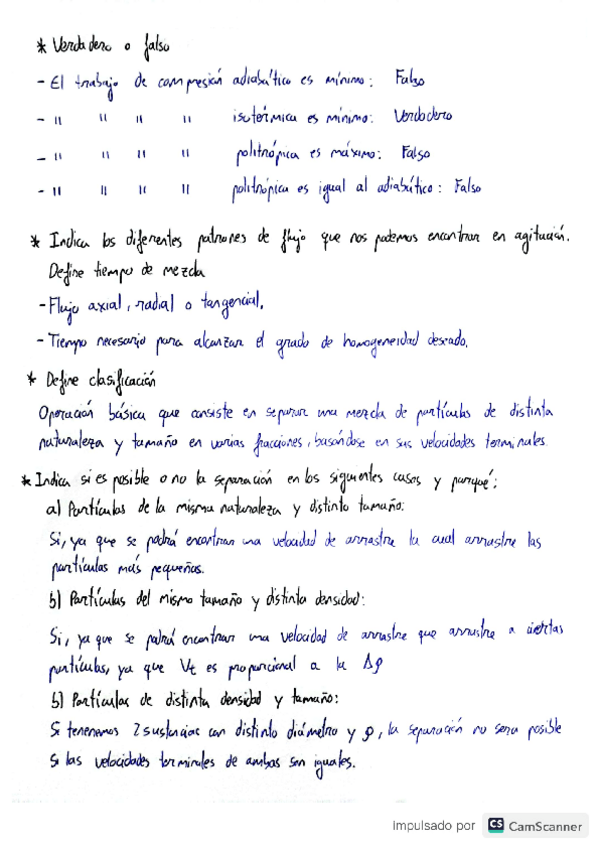 * Verdadero o falso
- El trabajo de compresión adiabático es mínimo: Falso
- " " " " isotérmica es mínimo: Verdadero
- " " " " politrópica es máximo: Falso
- " " " " politrópica es igual al adiabático: Falso
* Indica los diferentes patrones de flujo que nos podemos encontrar en agitación.
Define tiempo de mezcla
- Flujo axial, radial o tangencial.
- Tiempo necesario para alcanzar el grado de homogeneidad deseado.
* Define clasificación
Operación básica que consiste en separar una mezcla de partículas de distinta
naturaleza y tamaño en varias fracciones, basándose en sus velocidades terminales.
* Indica si es posible o no la separación en los siguientes casos y porqué:
a) Partículas de la misma naturaleza y distinto tamaño:
Si, ya que se podrá encontrar una velocidad de arrastre la cual arrastre las
partículas más pequeñas.
b) Partículas del mismo tamaño y distinta densidad:
Si, ya que se podrá encontrar una velocidad de arrastre que arrastre a ciertas
partículas, ya que Vt es proporcional a la Δρ
b) Partículas de distinta densidad y tamaño:
Si tenenemos 2 sustancias con distinto diámetro y ρ, la separación no sera posible
si las velocidades terminales de ambas son iguales.
Impulsado por CS CamScanner